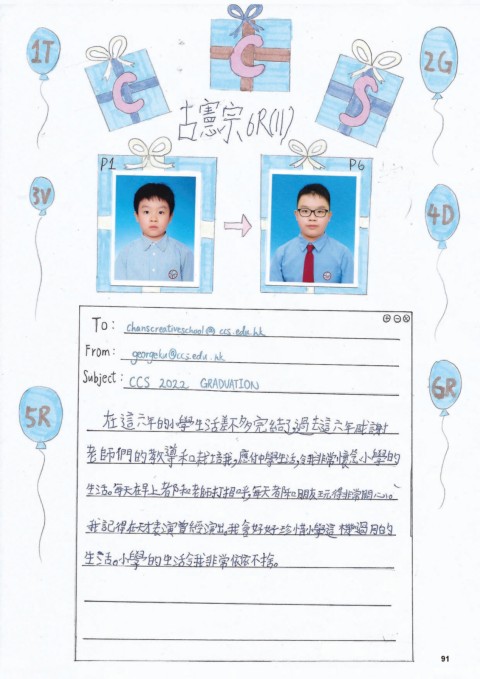 1T
C
C
S
2G
古憲宗 6R(11)
P1
P6
3V
4D
To: chanscreativeschool@ccs.edu.hk
From: georgeku@ccs.edu.hk
Subject: CCS 2022 GRADUATION
5R
6R
在這六年的小學生活差不多完結了,過去這六年感謝
老師們的教導和栽培我,應付中學生活,令我非常懷念小學的
生活。每天在早上都和老師打招呼,每天都和朋友玩得非常開心。
我記得在天才表演曾經演出。我會好好珍惜小學這裡過的
生活。小學的生活令我非常依依不捨。
91